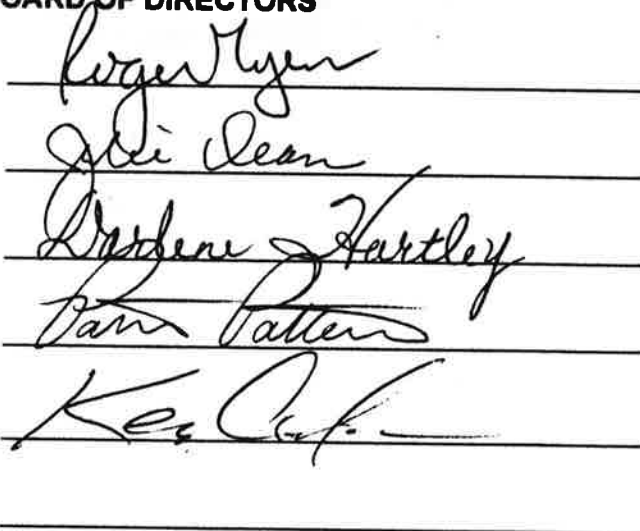 OARD OF DIRECTORS
Roger Myers
Julie Dean
Darlene Hartley
Pam
Ken